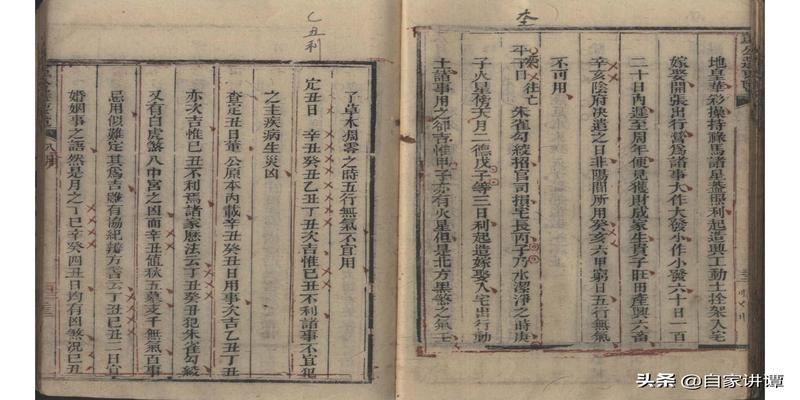 杢
地皇華彩操持祿馬諸星蓋照利起造興工動土拴架入宅
嫁娶開張出行營爲諸事大作大發小作小發六十日一百
二十日內遲至周年便見獲財成家生貴子旺田產興六畜
辛亥陰府決遣之日非陽間所用癸亥六甲窮日五行無氣
不可用
平子日 朱雀勾絞招官司損宅長丙子乃水潔淨之時庚
往亡
子火星傍天月二德戊子等三日利起造嫁娶入宅出行動
土諸事用之卻吉惟甲子亦有火星但是北方黑煞之氣
乙丑利
了草木凋零之時五行無氣不宜用
定丑日 辛丑癸丑乙丑丁丑次吉惟己丑不利諸事不宜犯
之主疾病生災凶
查定丑日董公原本內載辛丑癸丑日用事次吉乙丑丁丑
亦次吉惟己丑不利焉諸家曆法云丁丑癸丑犯朱雀勾絞
又有白虎煞入中宮之凶而辛丑値秋五墓支干無氣百事
忌用似難定其爲吉雖有協紀辨方書云丁丑己丑二日宜
婚姻事之語然是月之丁巳辛癸四丑日均有凶煞况巳丑
八月
头条 @自家讲谭